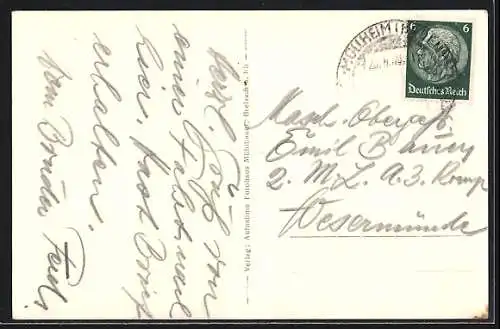 Herzl. Grüße von
einer Fahrt nach
hier. Hast Brief
erhalten.
Vom Bruder Ferdi.
Verlag: Aufnahme Fotohaus Mühlhauser
MÜLLHEIM (BADEN)
6 6
Deutsches Reich
Masch. Obergefr.
Emil Bauer
2. M. L. A. 3. Komp
Wesermünde